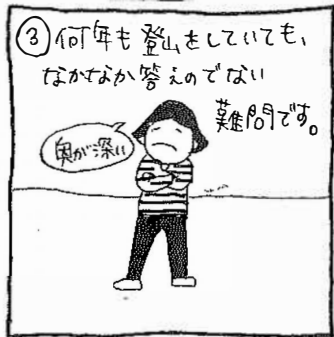 ③何年も登山をしていても、
なかなか答えのでない
難問です。
奥が深い